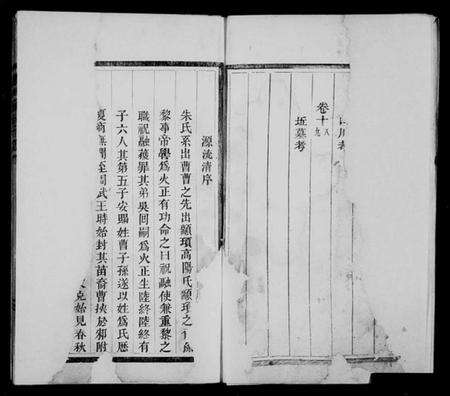 卷十八
九
坵墓考
源流清序
朱氏系出曹曹之先出顓頊高陽氏顓頊之
黎事帝嚳為火正有功命之曰祝融使兼重黎之
職祝融獲罪其弟吳回嗣為火正生陸終陸終有
子六人其第五子安賜姓曹子孫遂以姓為氏歷
夏商 至周武王時始封其苗裔曹挾於邾附
克始見春秋